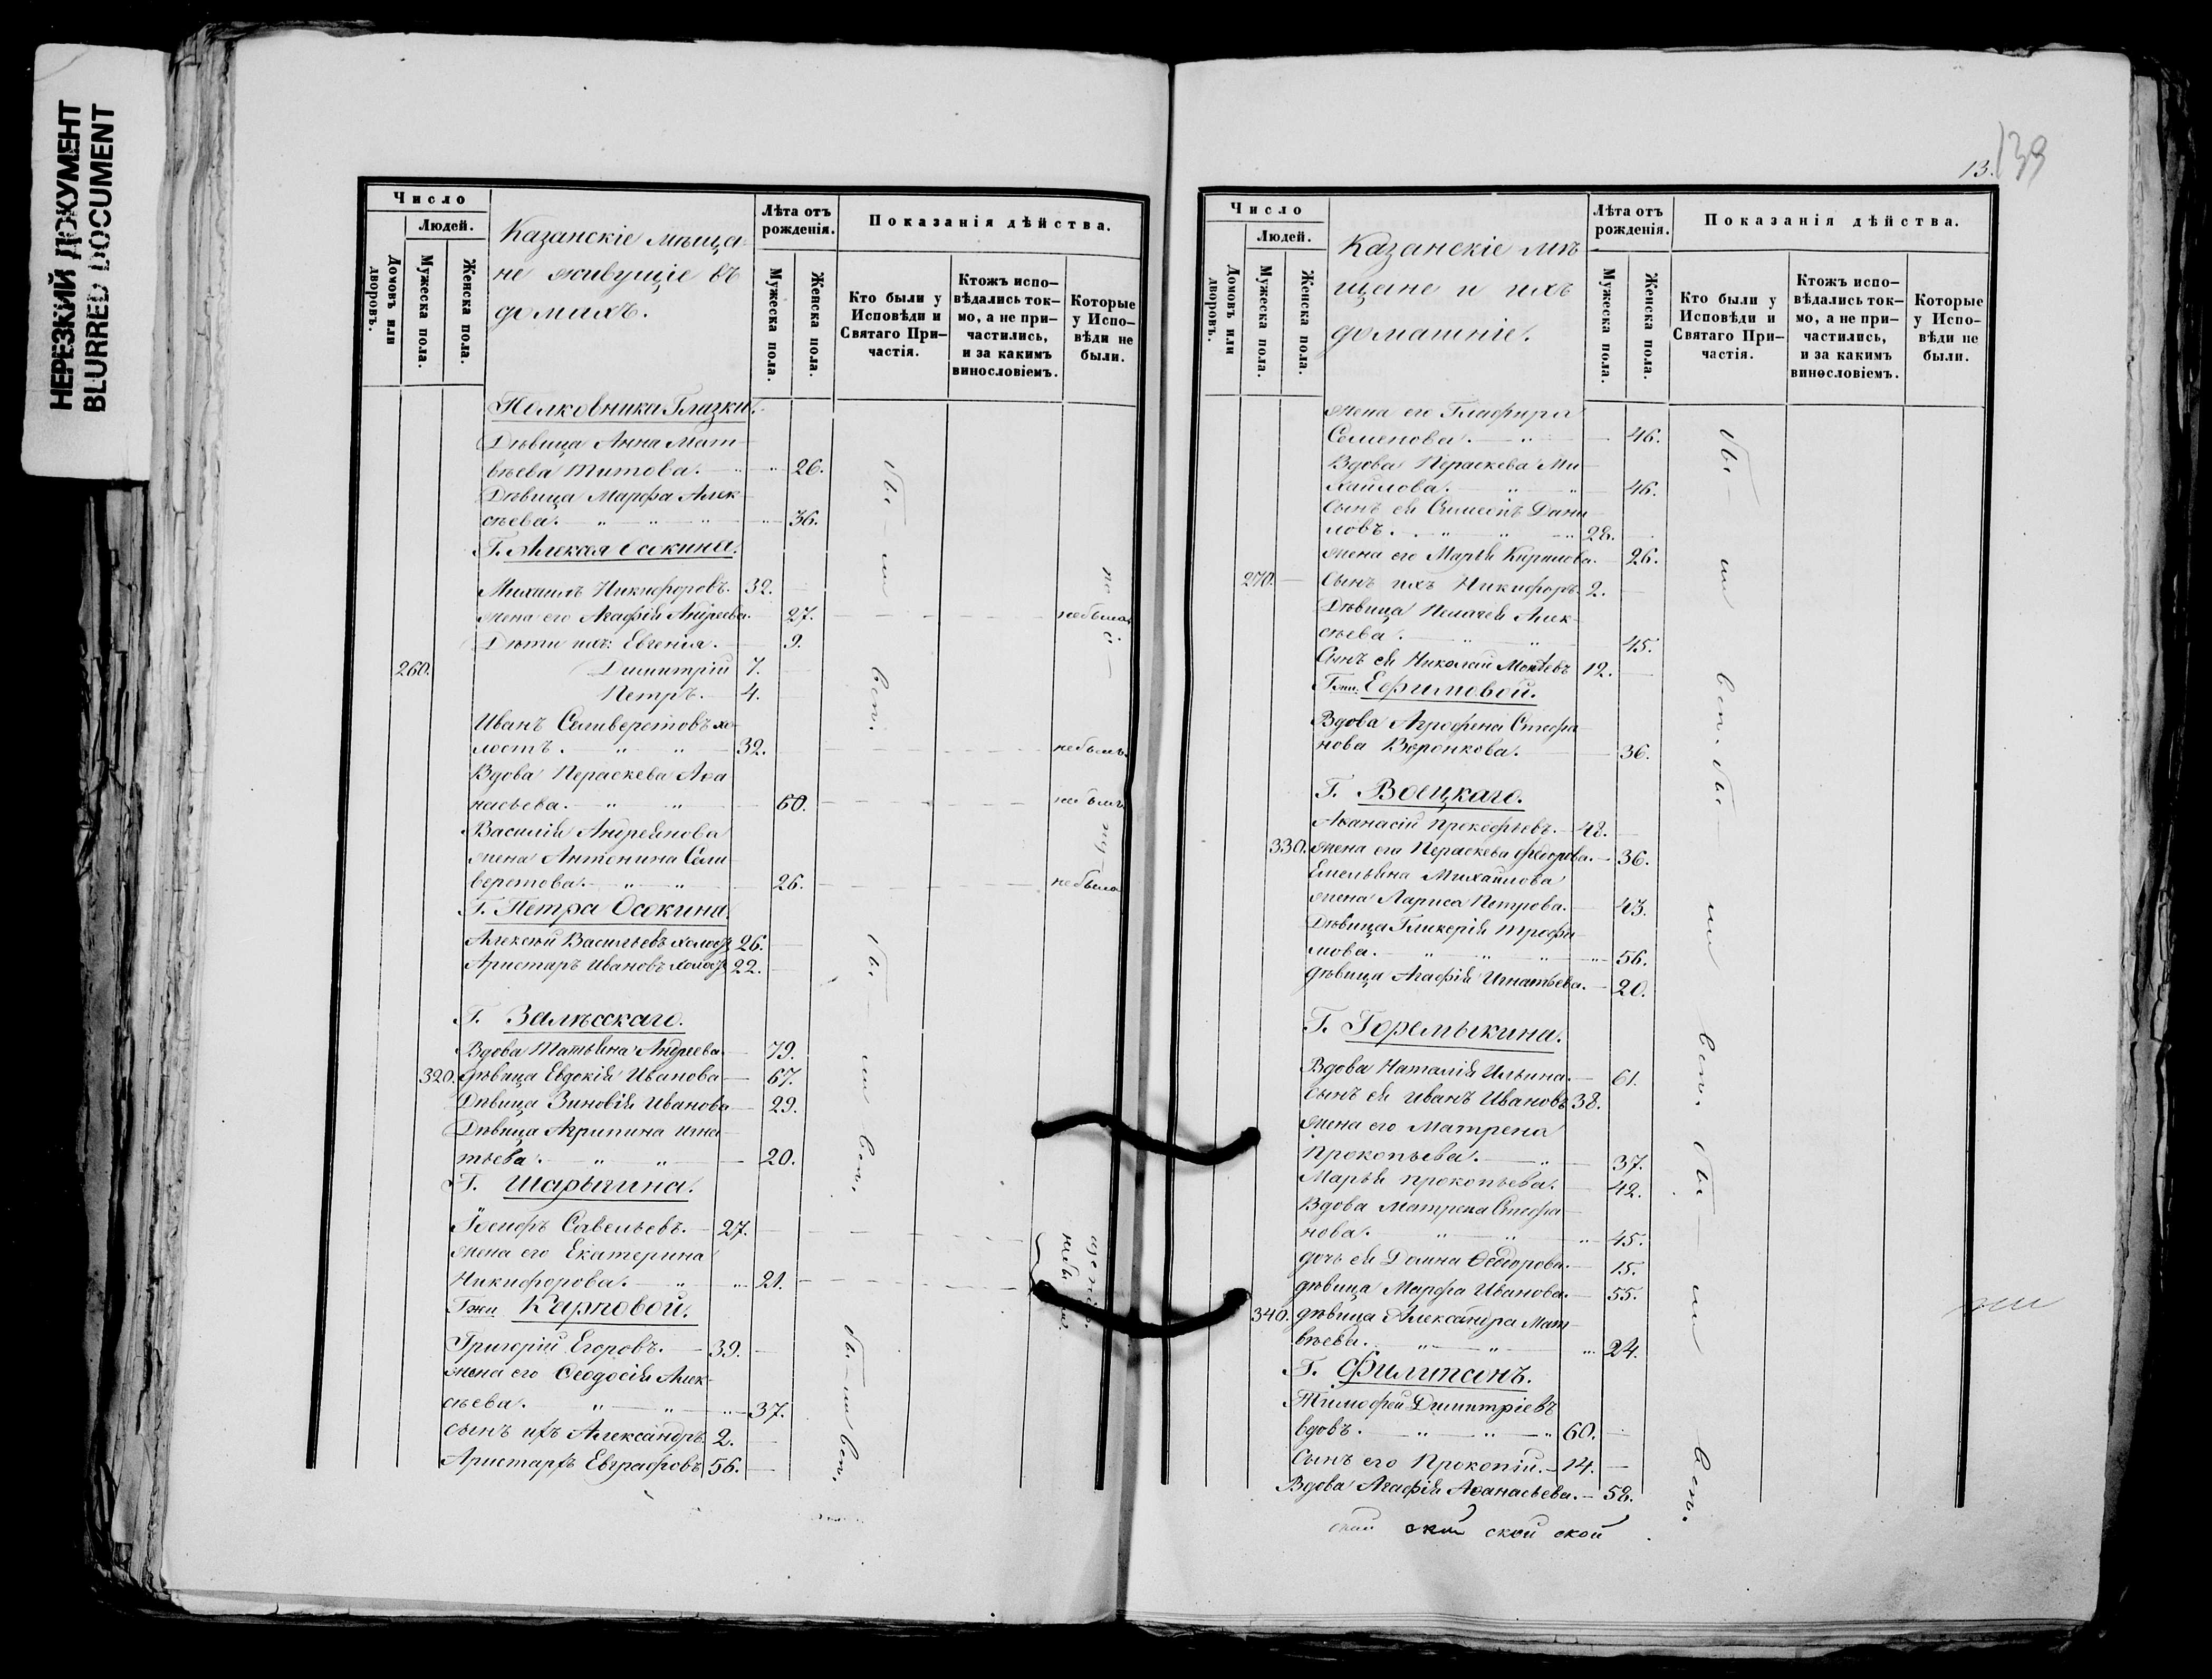 НЕРЕЗКИЙ ДОКУМЕНТ
BLURRED DOCUMENT
Число
Людей.
Домовъ или дворовъ.
Мужеска пола.
Женска пола.
Казанскіе мѣща-
не живущіе въ
домахъ.
Лѣта отъ рожденія.
Мужеска пола.
Женска пола.
Показанія дѣйства.
Кто были у Исповѣди и Святаго При-частія.
Ктожъ испо-вѣдались ток-мо, а не при-частились, и за какимъ винословіемъ.
Которые у Испо-вѣди не были.
Полковника
Дѣвица Анна Мат-
вѣева Титова. 26.
Дѣвица Марфа Алек-
сѣева. 36.
Г. Алексѣя Осокина.
Михаилъ Никифоровъ. 32.
жена его Агафія Андреева. 27. не была
Дѣти ихъ: Евгенія. 9.
260. Димитрій 7.
Петръ. 4.
Иванъ Селиверстовъ хо-
лостъ. 32. не былъ.
Вдова Параскева Аѳа-
насьева. 60. не была
Василія Андреянова
жена Антонина Сели-
верстова. 26. не была
Г. Петра Осокина.
Алексѣй Васильевъ холост 26.
Аристархъ Ивановъ холост 22.
Г. Залѣсскаго.
Вдова Татьяна Андреева. 79.
320. дѣвица Евдокія Иванова 67.
Дѣвица Зиновія Иванова 29.
Дѣвица Агрипина Игна-
тьева. 20.
Г. Шарыгина.
Іосифъ Савельевъ. 27.
жена его Екатерина
Никифорова. 21.
Гжи Карповой.
Григорій Егоровъ. 39.
жена его Ѳеодосія Алек-
сѣева. 37.
сынъ ихъ Александръ. 2.
Аристархъ Евграфовъ 56.
бы — ли всп.
бы — ли всп.
бы — ли всп.
13.
139
Число
Людей.
Домовъ или дворовъ.
Мужеска пола.
Женска пола.
Казанскіе мѣ-
щане и ихъ
домашніе.
Лѣта отъ рожденія.
Мужеска пола.
Женска пола.
Показанія дѣйства.
Кто были у Исповѣди и Святаго При-частія.
Ктожъ испо-вѣдались ток-мо, а не при-частились, и за какимъ винословіемъ.
Которые у Испо-вѣди не были.
жена его Глафира
Семенова. 46.
Вдова Параскева Ми-
хайлова. 46.
сынъ ея Симеонъ Дани-
ловъ. 28.
жена его Марья Кирилова. 26.
270. сынъ ихъ Никифоръ. 2.
Дѣвица Пелагея Алек-
сѣева. 45.
Сынъ ея Николай 12.
Гжи Ефимовой.
Вдова Агрофина Стефа-
нова Воронкова. 36.
Г. Воецкаго.
Аѳанасій Прокофьевъ. 48.
330. жена его Параскева Федорова. 36.
Емельяна Михайлова
жена Лариса Петрова. 43.
Дѣвица Гликерія Трофи-
мова. 56.
дѣвица Агафія Игнатьева. 20.
Г. Горемыкина.
Вдова Наталія Ильина. 61.
сынъ ея Иванъ Ивановъ 38.
жена его Матрена
Прокопьева. 37.
Марья Прокопьева. 42.
Вдова Матрена Стефа-
нова. 45.
дочь ея Домна Ѳедорова. 15.
дѣвица Марфа Иванова. 55.
340. дѣвица Александра Мат-
вѣева. 24.
Г. Филипсонъ.
Тимофей Димитріевъ
вдовъ. 60.
Сынъ его Прокопій. 14.
Вдова Агафія Аѳанасьева. 58.
бы — ли всп.
бы — ли всп.
бы — ли всп.
ской ской ской